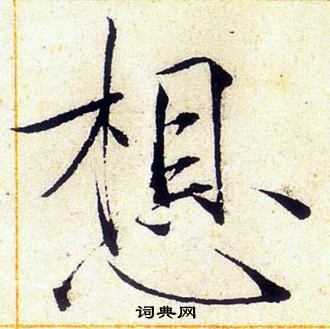 想
词典网